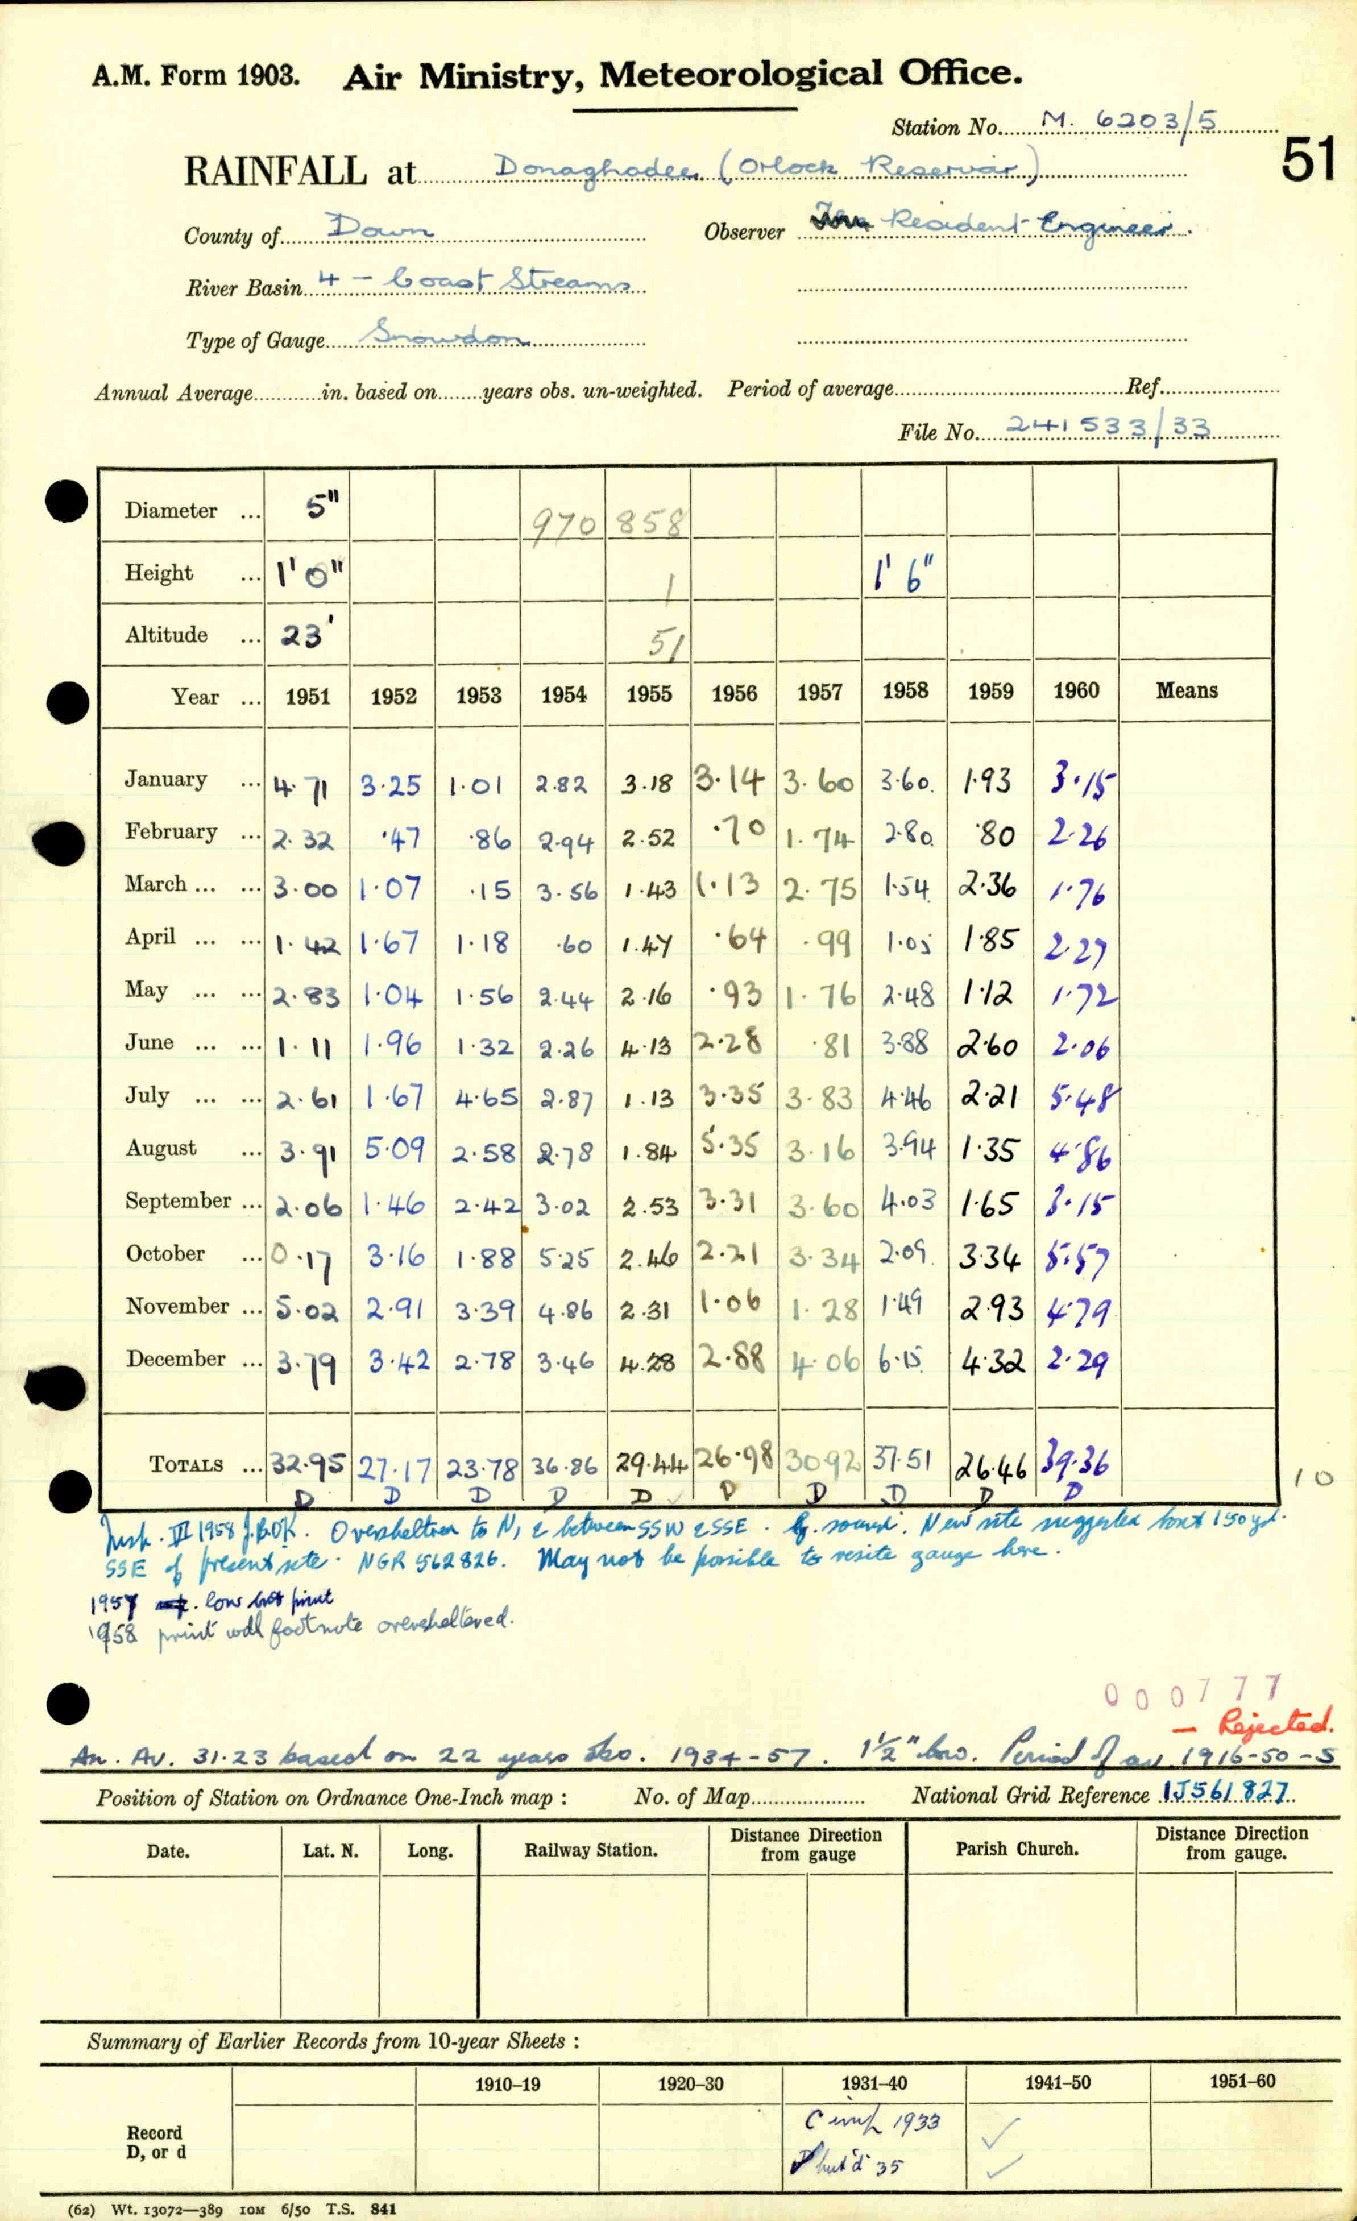 A.M. Form 1903. Air Ministry, Meteorological Office.
Station No. M. 6203/5
51
RAINFALL at Donaghadee (Orlock Reservoir)
County of Down Observer The Resident Engineer.
River Basin 4 - Coast Streams
Type of Gauge Snowdon
Annual Average in. based on years obs. un-weighted. Period of average Ref.
File No. 241533/33
Diameter ... 5" 970 858
Height ... 1' 0" 1 1' 6"
Altitude ... 23' 51
Year ... 1951 1952 1953 1954 1955 1956 1957 1958 1959 1960 Means
January ... 4.71 3.25 1.01 2.82 3.18 3.14 3.60 3.60 1.93 3.15
February ... 2.32 .47 .86 2.94 2.52 .70 1.74 2.80 .80 2.26
March ... ... 3.00 1.07 .15 3.56 1.43 1.13 2.75 1.54 2.36 1.76
April ... ... 1.42 1.67 1.18 .60 1.47 .64 .99 1.05 1.85 2.27
May ... ... 2.83 1.04 1.56 2.44 2.16 .93 1.76 2.48 1.12 1.72
June ... ... 1.11 1.96 1.32 2.26 4.13 2.28 .81 3.88 2.60 2.06
July ... ... 2.61 1.67 4.65 2.87 1.13 3.35 3.83 4.46 2.21 5.48
August ... 3.91 5.09 2.58 2.78 1.84 5.35 3.16 3.94 1.35 4.86
September ... 2.06 1.46 2.42 3.02 2.53 3.31 3.60 4.03 1.65 3.15
October ... 0.17 3.16 1.88 5.25 2.46 2.21 3.34 2.09 3.34 5.57
November ... 5.02 2.91 3.39 4.86 2.31 1.06 1.28 1.49 2.93 4.79
December ... 3.79 3.42 2.78 3.46 4.28 2.88 4.06 6.15 4.32 2.29
TOTALS ... 32.95 27.17 23.78 36.86 29.44 26.98 30.92 37.51 26.46 39.36 10
D D D D D D D D D D
Insp. III 1958 J.BOK. Oversheltered to N, & between SSW & SSE. sound. New site suggested bout 150 yd.
SSE of present site. NGR 562826. May not be possible to resite gauge here.
1957 low but print
1958 print with footnote oversheltered.
000777
- Rejected.
An. Av. 31.23 based on 22 years obs. 1934-57. 1½" low. Period of av 1916-50 - S
Position of Station on Ordnance One-Inch map : No. of Map National Grid Reference IJ561827
Date. Lat. N. Long. Railway Station. Distance from Direction gauge Parish Church. Distance from Direction gauge.
Summary of Earlier Records from 10-year Sheets :
1910–19 1920–30 1931–40 1941–50 1951–60
Record C 1933 ✓
D, or d 35 ✓
(62) Wt. 13072—389 10M 6/50 T.S. 841